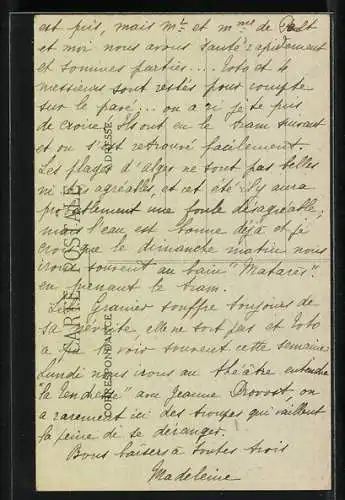 est pris, mais Mr et Mme de Pelt
et moi nous avons sauté rapidement
et sommes parties.... Toto et 4
messieurs sont restés pour compte
sur le pavé... on a ri je te prie
de croire. Ils ont eu le tram suivant
et on s'est retrouvé facilement.
Les plages d'Alger ne sont pas belles
ni agréables, et cet été il y aura
probablement une foule désagréable,
mais l'eau est bonne déjà et je
crois que le dimanche matin nous
irons souvent au bain "Matarès".
en prenant le tram.
Granier souffre toujours de
sa névrite, elle ne sort pas et Toto
a pu la voir souvent cette semaine.
Lundi nous irons au théâtre entendre
"la Tendresse" avec Jeanne Provost, on
a rarement ici des troupes qui vaillent
la peine de se déranger.
Bons baisers à toutes trois
Madeleine
CARTE POSTALE
CORRESPONDANCE
ADRESSE